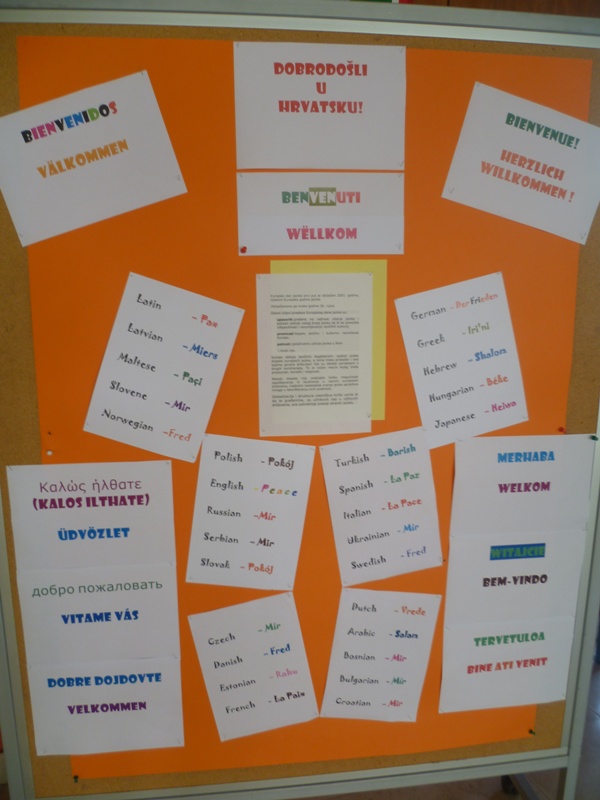 BIENVENIDOS
VÄLKOMMEN
DOBRODOŠLI
U
HRVATSKU!
BENVENUTI
WËLLKOM
BIENVENUE!
HERZLICH
WILLKOMMEN !
Latin - Pax
Latvian - Miers
Maltese - Paçi
Slovene - Mir
Norwegian - Fred
German - Der Frieden
Greek - Iri'ni
Hebrew - Shalom
Hungarian - Béke
Japanese - Heiwa
Polish - Pokój
English - Peace
Russian - Mir
Serbian - Mir
Slovak - Pokój
Turkish - Barish
Spanish - La Paz
Italian - La Pace
Ukrainian - Mir
Swedish - Fred
Καλώς ήλθατε
(KALOS ILTHATE)
ÜDVÖZLET
добро пожаловать
VITAME VÁS
DOBRE DOJDOVTE
VELKOMMEN
Czech - Mir
Danish - Fred
Estonian - Rahu
French - La Paix
Dutch - Vrede
Arabic - Salam
Bosnian - Mir
Bulgarian - Mir
Croatian - Mir
MERHABA
WELKOM
WITAJCIE
BEM-VINDO
TERVETULOA
BINE ATI VENIT